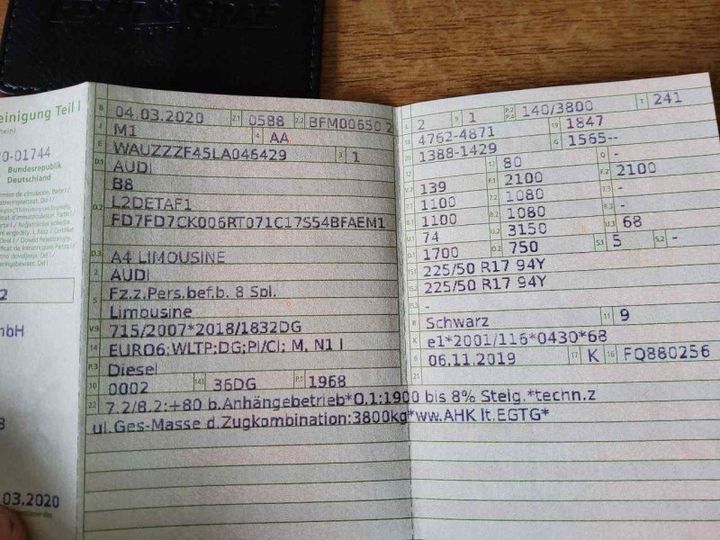 einigung Teil I
0-01744
Bundesrepublik
Deutschland
2
bH
03.2020
B 04.03.2020 2.1 0588 2.2 BFM00650 2
J M1 4 AA
E WAUZZZF45LA046429 3 1
D.1 AUDI
B8
D.2 L2DETAF1
FD7FD7CK006RT071C17S54BFAEM1
D.3 A4 LIMOUSINE
2 AUDI
5 Fz.z.Pers.bef.b. 8 Spl.
Limousine
V.9 715/2007*2018/1832DG
14 EURO6;WLTP;DG;PI/CI; M, N1 I
P.3 Diesel
10 0002 14.1 36DG P.1 1968
22 7.2/8.2:+80 b.Anhängebetrieb*O.1:1900 bis 8% Steig.*techn.z
ul.Ges-Masse d.Zugkombination:3800kg*ww.AHK lt.EGTG*
L 2 9 1 P.2 P.4 140/3800 T 241
18 4762-4871 19 1847
20 1388-1429 G 1565--
80 Q -
139 2100 F.2 2100
1100 1080 -
1100 1080 -
74 3150 U.3 68
O.1 1700 O.2 750 S.1 5 S.2 -
225/50 R17 94Y
225/50 R17 94Y
-
-
R Schwarz 11 9
K e1*2001/116*0430*68
6 06.11.2019 17 K 16 FQ880256
21